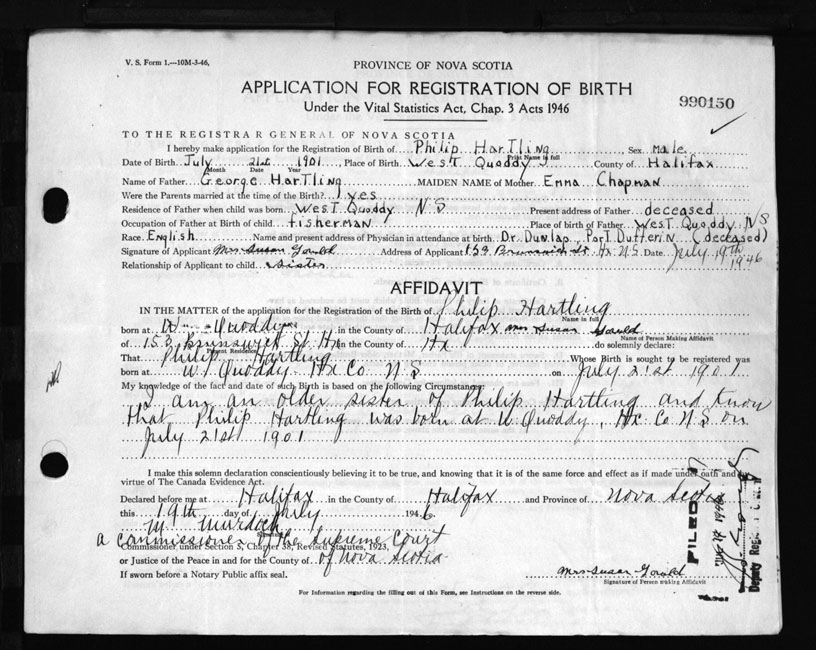 V. S. Form 1.—10M-3-46.
PROVINCE OF NOVA SCOTIA
APPLICATION FOR REGISTRATION OF BIRTH
Under the Vital Statistics Act, Chap. 3 Acts 1946
990150
TO THE REGISTRAR GENERAL OF NOVA SCOTIA
I hereby make application for the Registration of Birth of Philip Hartling, Sex Male
Print Name in full
Date of Birth July 21st 1901, Place of Birth West Quoddy County of Halifax
Month Date Year
Name of Father George Hartling MAIDEN NAME of Mother Emma Chapman
Were the Parents married at the time of the Birth? yes
Residence of Father when child was born West Quoddy N S Present address of Father deceased
Occupation of Father at Birth of child fisherman Place of birth of Father West Quoddy N S
Race English Name and present address of Physician in attendance at birth Dr. Dunlap, Port Dufferin (deceased)
Signature of Applicant Mrs Susan Gould Address of Applicant 153 Brunswick St. Hx. N.S. Date July 19th 1946
Relationship of Applicant to child Sister
AFFIDAVIT
IN THE MATTER of the application for the Registration of the Birth of Philip Hartling
Name in full
born at W Quoddy in the County of Halifax Mrs Susan Gould
Name of Person Making Affidavit
of 153 Brunswick St. Hx in the County of Hx do solemnly declare:
Present Residence
That Philip Hartling Whose Birth is sought to be registered was
born at W. Quoddy Hx Co N.S on July 21st 1901
My knowledge of the fact and date of such Birth is based on the following Circumstance:
I am an older sister of Philip Hartling and know
that Philip Hartling was born at W Quoddy, Hx Co N.S on
July 21st 1901
I make this solemn declaration conscientiously believing it to be true, and knowing that it is of the same force and effect as if made under oath and by
virtue of The Canada Evidence Act.
Declared before me at Halifax in the County of Halifax and Province of Nova Scotia
this 19th day of July 1946
M. Murdoch
a commissioner of the Supreme Court
Commissioner under Section 3, Chapter 38, Revised Statutes, 1923,
or Justice of the Peace in and for the County of of Nova Scotia
If sworn before a Notary Public affix seal.
Mrs Susan Gould
Signature of Person making Affidavit
For Information regarding the filling out of this Form, see Instructions on the reverse side.
FILED
Deputy